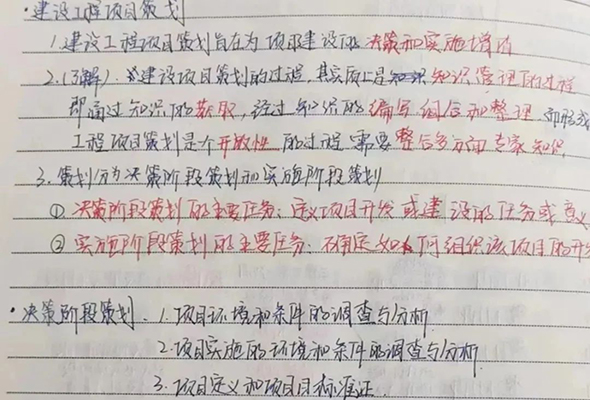 ·建设工程项目策划
1.建设工程项目策划旨在为项目建设的决策和实施增值
2.(了解).建设项目策划的过程,其实质上是知识管理的过程
即通过知识的获取,经过知识的编写、组合和整理,而形成
工程项目策划是个开放性的过程,需要整合多方面专家知识
3.策划分为决策阶段策划和实施阶段策划
①决策阶段策划的主要任务:定义项目开发或建设的任务或意义
②实施阶段策划的主要任务:确定如何组织该项目的开
·决策阶段策划.1.项目环境和条件的调查与分析
2.项目实施的环境和条件的调查与分析.
3.项目定义和项目目标准证.